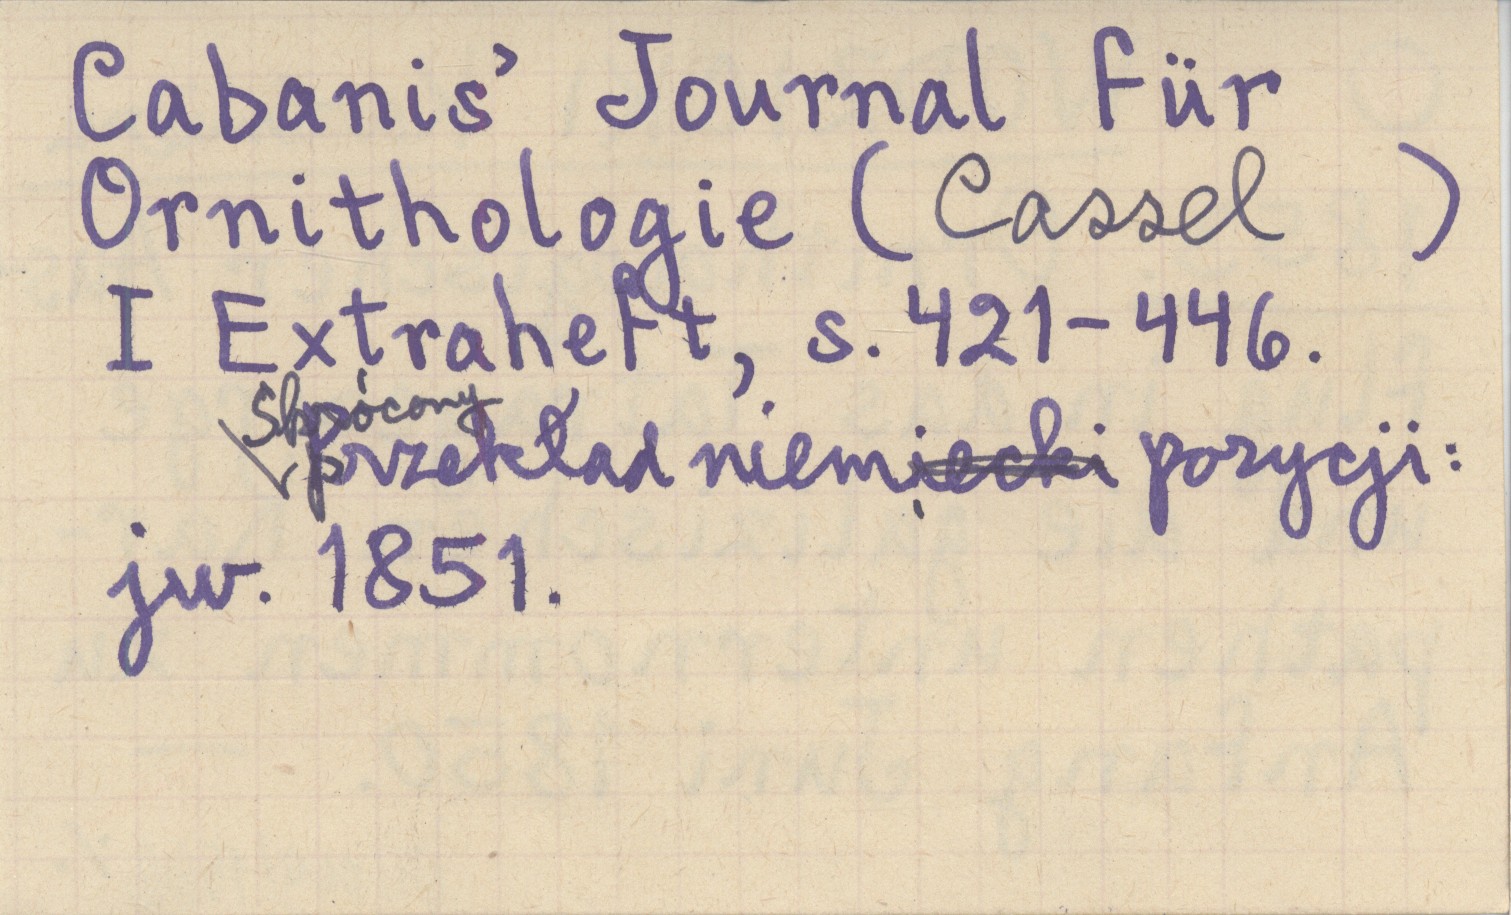 Cabanis' Journal für
Ornithologie (Cassel)
I Extraheft, s. 421-446.
Skrócony
przekład niem. pozycji:
jw. 1851.